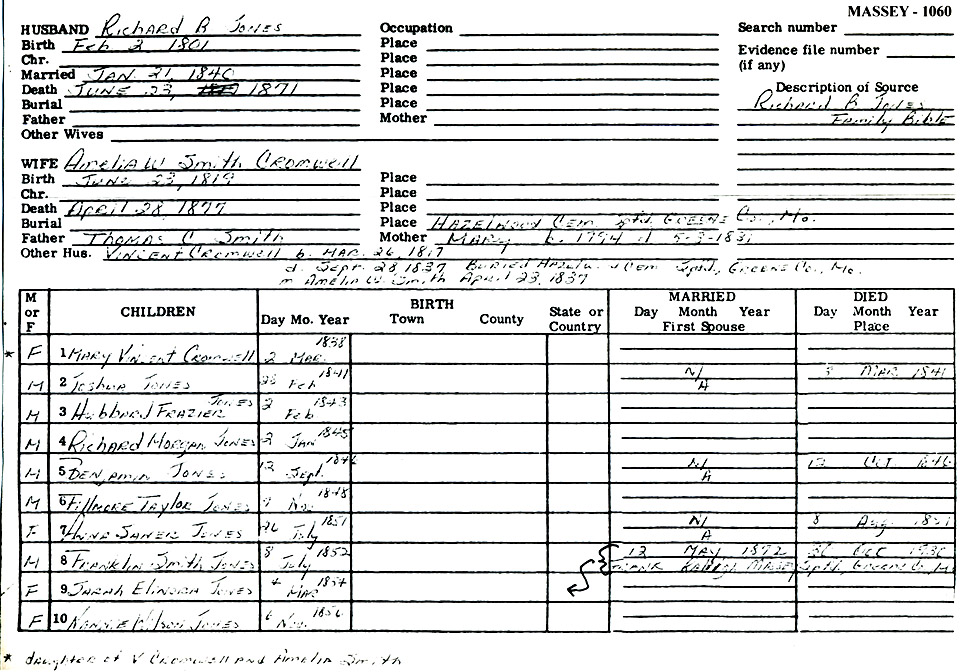 MASSEY - 1060
HUSBAND Richard B Jones Occupation Search number
Birth Feb 2 1801 Place
Chr. Place Evidence file number
Married JAN. 21, 1840 Place (if any)
Death JUNE 23, 1871 Place Description of Source
Burial Place Richard B Jones
Father Mother Family Bible
Other Wives
WIFE Amelia W Smith CROMWELL
Birth JUNE 23, 1819 Place
Chr. Place
Death APRIL 28, 1877 Place
Burial Place HAZELWOOD Cem. Spfd. GREENE Co., Mo.
Father THOMAS C Smith Mother MARY b. 1794 d 5-3-1831
Other Hus. VINCENT CROMWELL b. MAR. 26, 1817
d. Sept. 28, 1837 BURIED Cem Spfd., GREENE Co., Mo.
m Amelia W. Smith April 23, 1837
M or F CHILDREN BIRTH MARRIED DIED
Day Mo. Year Town County State or Country Day Month Year First Spouse Day Month Year Place
* F 1 MARY VINCENT CROMWELL 2 MAR. 1838
M 2 JOSHUA JONES 28 Feb 1841 N/A 8 MAR 1841
M 3 Hubbard FRAZIER JONES 2 Feb 1843
M 4 Richard MORGAN JONES 2 JAN 1845
M 5 BENJAMIN JONES 12 Sept. 1846 N/A 12 OCT 1846
M 6 FILLMORE TAYLOR JONES 9 Nov 1848
F 7 JONES 26 July 1851 N/A 8 Aug 1851
M 8 FRANKLIN Smith JONES 8 July 1852 12 MAY 1872 30 OCT 1930
FRANK MASSEY Spfd., GREENE Co., M
F 9 SARAH ELINORA JONES 4 MAR 1854
F 10 NANNIE WILSON JONES 6 Nov. 1856
* daughter of V CROMWELL AND Amelia Smith